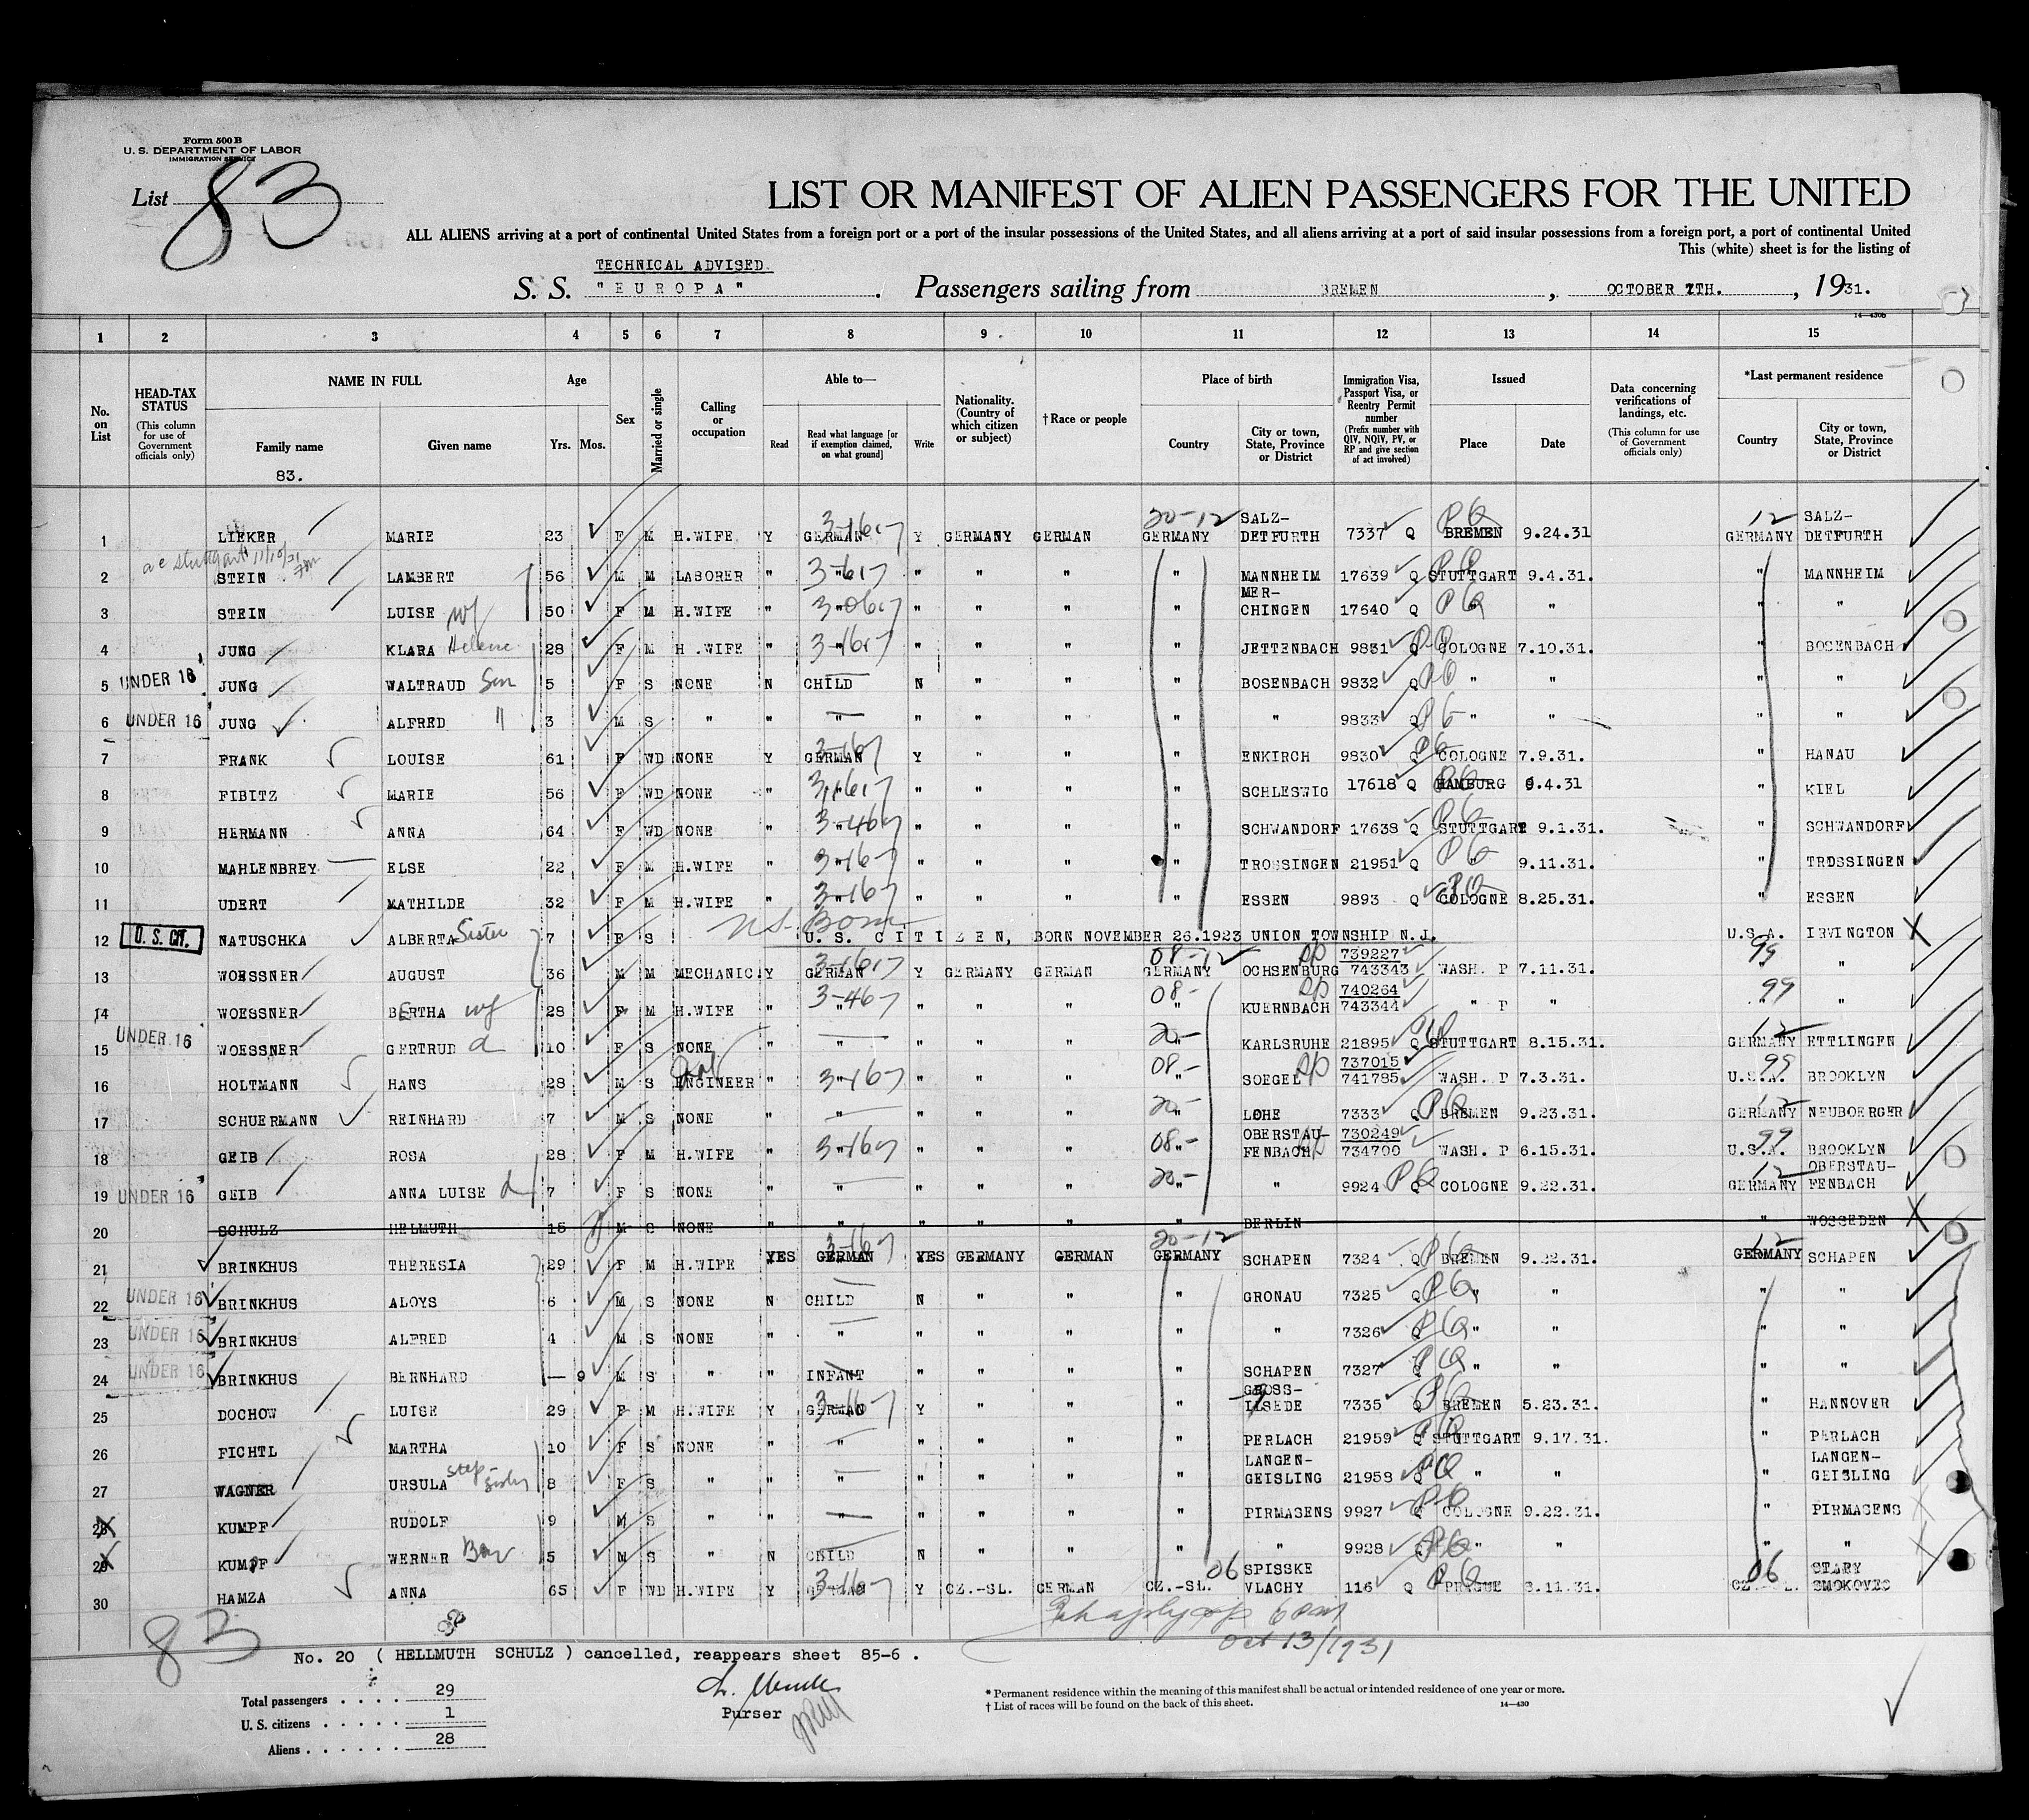 Form 500 B
U. S. DEPARTMENT OF LABOR
IMMIGRATION SERVICE
List 83
LIST OR MANIFEST OF ALIEN PASSENGERS FOR THE UNITED
ALL ALIENS arriving at a port of continental United States from a foreign port or a port of the insular possessions of the United States, and all aliens arriving at a port of said insular possessions from a foreign port, a port of continental United
This (white) sheet is for the listing of
TECHNICAL ADVISED.
S. S. "EUROPA". Passengers sailing from BREMEN, OCTOBER 7TH., 1931.
14—430b
1 2 3 4 5 6 7 8 9 10 11 12 13 14 15
No. on List
HEAD-TAX STATUS (This column for use of Government officials only)
NAME IN FULL
Family name Given name
83.
Age Yrs. Mos.
Sex
Married or single
Calling or occupation
Able to— Read Read what language [or if exemption claimed, on what ground] Write
Nationality. (Country of which citizen or subject)
† Race or people
Place of birth Country City or town, State, Province or District
Immigration Visa, Passport Visa, or Reentry Permit number (Prefix number with QIV, NQIV, PV, or RP and give section of act involved)
Issued Place Date
Data concerning verifications of landings, etc. (This column for use of Government officials only)
*Last permanent residence Country City or town, State, Province or District
1 LIEKER MARIE 23 F M H.WIFE Y GERMAN Y GERMANY GERMAN 20-12 GERMANY SALZ-DETFURTH 7337 Q PQ BREMEN 9.24.31 12 GERMANY SALZ-DETFURTH
2 STEIN LAMBERT 56 M M LABORER " " " " " " MANNHEIM 17639 Q STUTTGART 9.4.31. " MANNHEIM
3 STEIN LUISE wf 50 F M H.WIFE " " " " " " MER-CHINGEN 17640 Q PQ " " " "
4 JUNG KLARA Helene 28 F M H.WIFE " " " " " " JETTENBACH 9831 Q COLOGNE 7.10.31. " BOSENBACH
5 UNDER 16 JUNG WALTRAUD 5 F S NONE N CHILD N " " " BOSENBACH 9832 Q " " " "
6 UNDER 16 JUNG ALFRED " 3 M S " " " " " " " " 9833 Q " " " "
7 FRANK LOUISE 61 F WD NONE Y GERMAN Y " " " ENKIRCH 9830 Q COLOGNE 7.9.31. " HANAU
8 FIBITZ MARIE 56 F WD NONE " " " " " " SCHLESWIG 17618 Q HAMBURG 9.4.31 " KIEL
9 HERMANN ANNA 64 F WD NONE " " " " " " SCHWANDORF 17638 Q STUTTGART 9.1.31. " SCHWANDORF
10 MAHLENBREY ELSE 22 F M H.WIFE " " " " " " TROSSINGEN 21951 Q PQ " 9.11.31. " TROSSINGEN
11 UDERT MATHILDE 32 F M H.WIFE " " " " " " ESSEN 9893 Q COLOGNE 8.25.31. " ESSEN
12 U. S. CIT. NATUSCHKA ALBERTA Sister 7 F S U.S. Born U.S. CITIZEN, BORN NOVEMBER 26.1923 UNION TOWNSHIP N.J. U.S.A. IRVINGTON X
13 WOESSNER AUGUST 36 M M MECHANIC. Y GERMAN Y GERMANY GERMAN 08-12 GERMANY OCHSENBURG 739227 743343 WASH. P 7.11.31. 99 " "
14 WOESSNER BERTHA wf 28 F M H.WIFE " 3-46 " " " " 08- " KUERNBACH 740264 743344 " P " 99 " "
15 UNDER 16 WOESSNER GERTRUD d 10 F S NONE " " " " " 20- " KARLSRUHE 21895 Q STUTTGART 8.15.31. 12 GERMANY ETTLINGEN
16 HOLTMANN HANS 28 M S ENGINEER " " " " " 08- " SOEGEL 737015 741785 WASH. P 7.3.31. 99 U.S.A. BROOKLYN
17 SCHUERMANN REINHARD 7 M S NONE " " " " " 20- " LOHE 7333 Q BREMEN 9.23.31. 12 GERMANY NEUBOERGER
18 GEIB ROSA 28 F M H.WIFE " " " " " 08- " OBERSTAU-FENBACH 730249 734700 WASH. P 6.15.31. 99 U.S.A. BROOKLYN
19 UNDER 16 GEIB ANNA LUISE d 7 F S NONE " " " " " 20- " " 9924 PQ COLOGNE 9.22.31. 12 GERMANY OBERSTAU-FENBACH
20 SCHULZ HELMUTH 15 M S NONE " " " " " " BERLIN " WOSSEDEN X
21 BRINKHUS THERESIA 29 F M H.WIFE YES GERMAN YES GERMANY GERMAN 20-12 GERMANY SCHAPEN 7324 Q BREMEN 9.22.31. 12 GERMANY SCHAPEN
22 UNDER 16 BRINKHUS ALOYS 6 M S NONE N CHILD N " " " GRONAU 7325 Q PQ " " " "
23 UNDER 16 BRINKHUS ALFRED 4 M S NONE " " " " " " " 7326 Q PQ " " " "
24 UNDER 16 BRINKHUS BERNHARD — 9 M S " " INFANT " " " " SCHAPEN 7327 Q PQ " " " "
25 DOCHOW LUISE 29 F M H.WIFE Y GERMAN Y " " " GROSS-ILSEDE 7335 Q BREMEN 5.23.31. " HANNOVER
26 FICHTL MARTHA 10 F S NONE " " " " " " PERLACH 21959 Q STUTTGART 9.17.31. " PERLACH
27 WAGNER URSULA step-sister 8 F S " " " " " " " LANGEN-GEISLING 21958 Q " " " LANGEN-GEISLING
28 KUMPF RUDOLF 9 M S " " " " " " " PIRMASENS 9927 Q COLOGNE 9.22.31. " PIRMASENS
29 KUMPF WERNER 5 M S " N CHILD N " " " " 9928 Q " " " "
30 HAMZA ANNA 65 F WD H.WIFE Y GERMAN Y CZ.-SL. GERMAN 06 CZ.-SL. SPISSKE VLACHY 116 Q PQ PRAGUE 8.11.31. 06 CZ.-SL. STARY SMOKOVEC
Oct 13/1931
83
No. 20 ( HELLMUTH SCHULZ ) cancelled, reappears sheet 85-6 .
Total passengers . . . . 29
U. S. citizens . . . . . 1
Aliens . . . . . . 28
Purser
* Permanent residence within the meaning of this manifest shall be actual or intended residence of one year or more.
† List of races will be found on the back of this sheet.
14—430